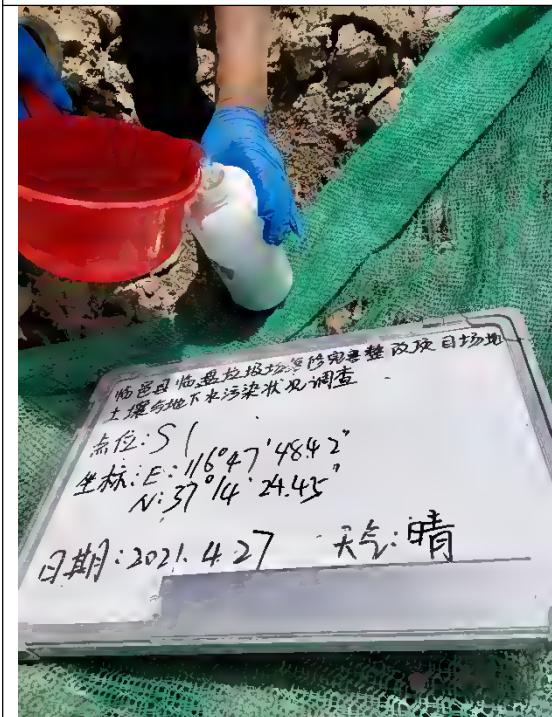 临邑县临盘垃圾场等修完善整改项目场地
土壤与地下水污染状况调查
点位:S1
坐标:E:116°47'48.42"
N:37°14'24.45"
日期:2021.4.27 天气:晴